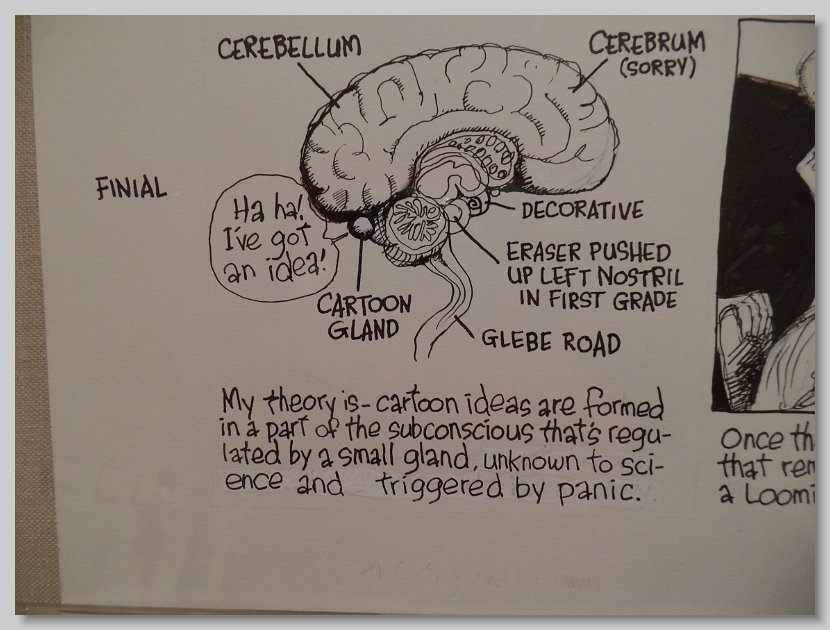 CEREBELLUM
CEREBRUM
(SORRY)
FINIAL
Ha ha!
I've got
an idea!
DECORATIVE
ERASER PUSHED
UP LEFT NOSTRIL
IN FIRST GRADE
CARTOON
GLAND
GLEBE ROAD
My theory is - cartoon ideas are formed
in a part of the subconscious that's regu-
lated by a small gland, unknown to sci-
ence and triggered by panic.
Once th
that rem
a Loomi